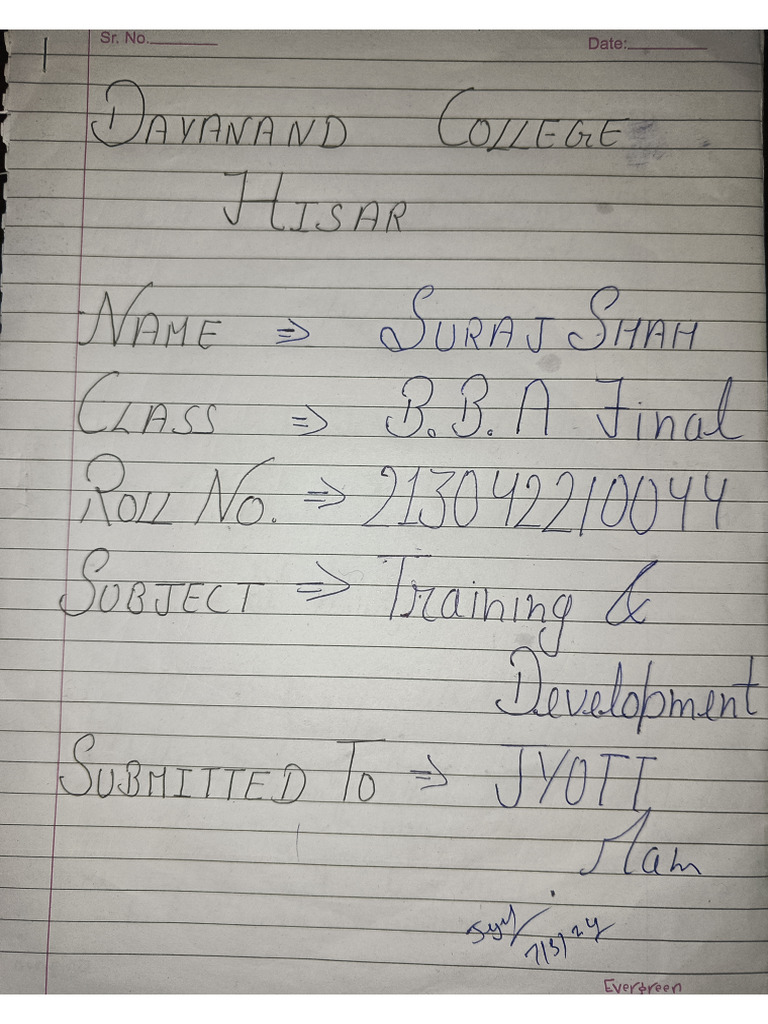 Sr. No.
Date:
1
DAYANAND COLLEGE
HISAR
NAME ⇒ SURAJ SHAH
CLASS ⇒ B.B.A Final
ROLL NO. ⇒ 213042210044
SUBJECT ⇒ Training &
Development
SUBMITTED TO ⇒ JYOTI
Mam
7/3/24
Evergreen